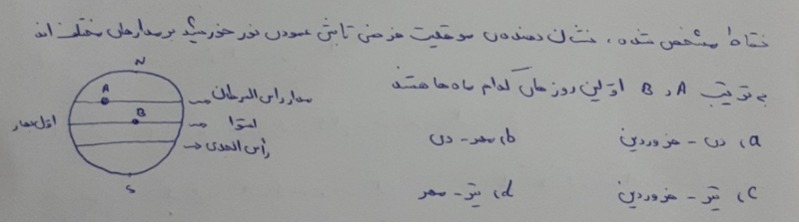 نقاط مشخص شده، نشان دهنده‌ی موقعیت فرضی تابش عمودی نور خورشید بر مدارهای مختلف اند
به ترتیب A و B اولین روزهای کدام ماه‌ها هستند
N
A
مدار رأس السرطان
B
استوا
اول بهار
رأس الجدی
S
a) دی - فروردین
b) مهر - دی
c) تیر - فروردین
d) تیر - مهر